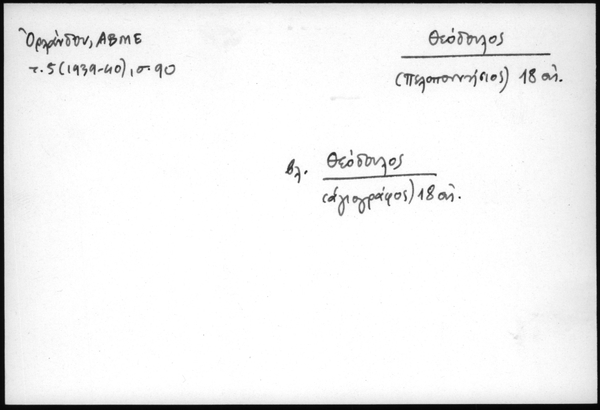 Ὀρλάνδου, ΑΒΜΕ
τ. 5 (1939-40), σ. 90
Θεόδουλος
(πελοποννήσιος) 18 αἰ.
βλ. Θεόδουλος
(ἁγιογράφος) 18 αἰ.